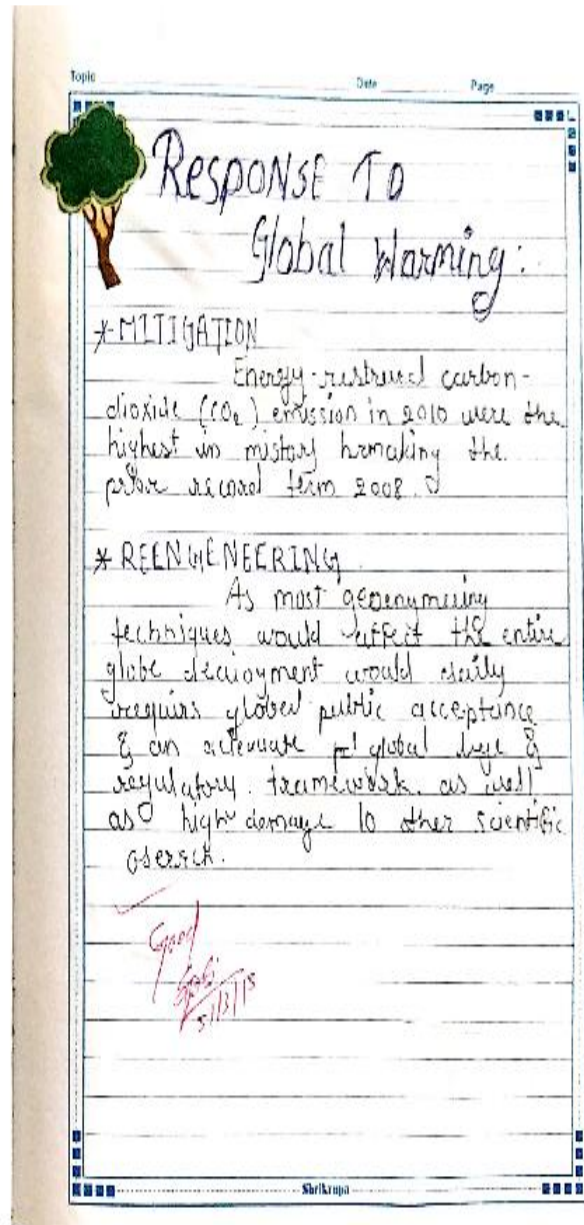 Topic Date Page
Response To
Global Warming:
*-MITIGATION
Energy-restrued carbon-
dioxide (CO2) emission in 2010 were the
highest in mistory hrmaking the
prior record term 2008.
* REENGENEERING
As most geoengmeering
techniques would affect the entire
globe would
requirs global public acceptance
& an global &
regulatory. framework. as well
as high demage to other scientific
Good
5/3/15
Shrikrupa